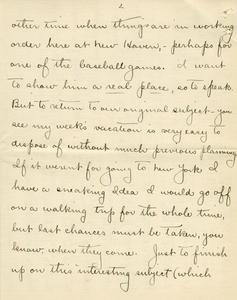 2
other time when things are in working
order here at New Haven,- perhaps for
one of the baseball games. I want
to show him a real place, so to speak.
But to return to our original subject - you
see my week's vacation is very easy to
dispose of without much previous planning
If it weren't for going to New York I
have a sneaking idea I would go off
on a walking trip for the whole time,
but last chances must be taken, you
know, when they come. Just to finish
up on this interesting subject (which